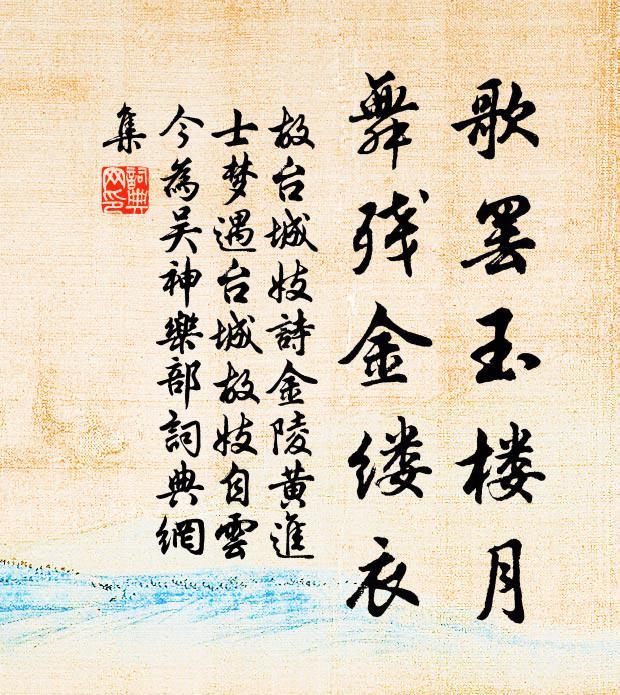 歌罢玉楼月
舞残金缕衣
故台城妓詩金陵黄進
士梦遇台城故妓自雲
今為吴神樂部詞典網
集
詞典
网印